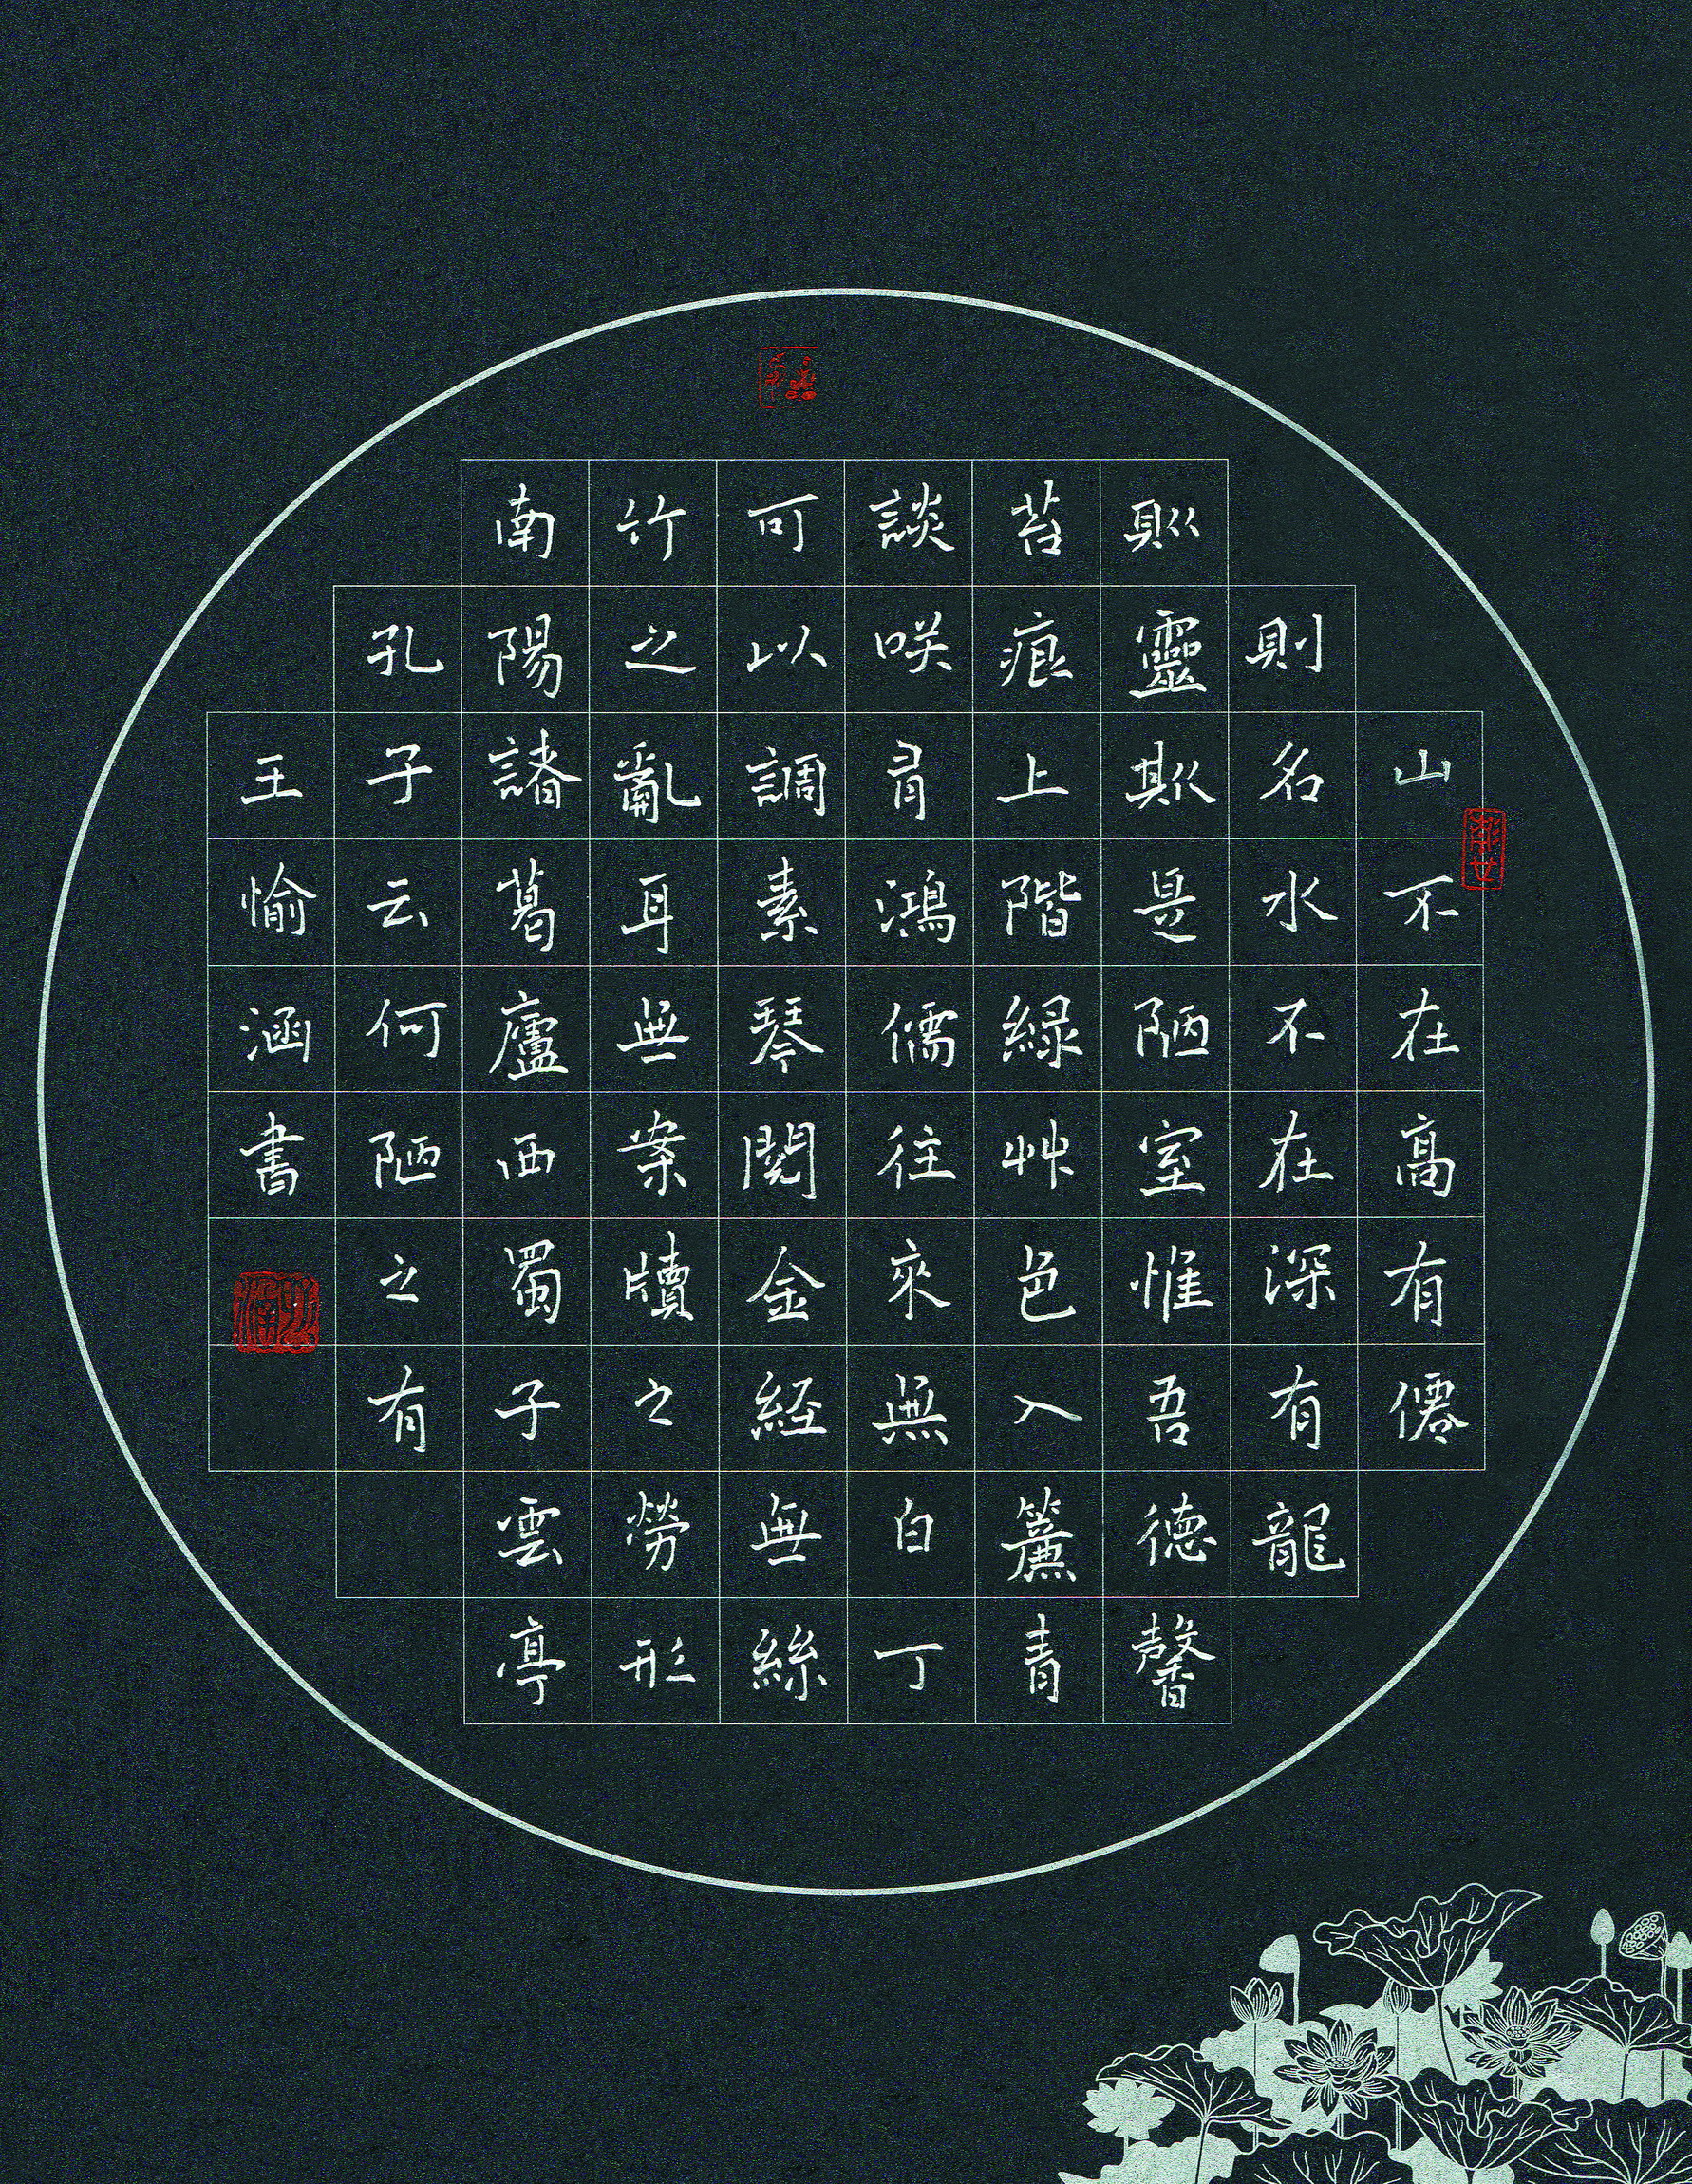 山不在高有僊
則名水不在深有龍
則靈斯是陋室惟吾德馨
苔痕上階緑艸色入簾青
談咲有鴻儒往來無白丁
可以調素琴閱金経無絲
竹之亂耳無案牘之勞形
南陽諸葛廬西蜀子雲亭
孔子云何陋之有
王愉涵書